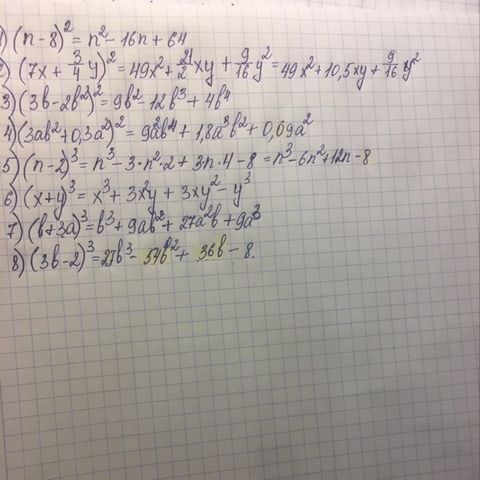 1) (n-8)² = n² - 16n + 64
2) (7x + 3/4 y)² = 49x² + 21/2 xy + 9/16 y² = 49x² + 10,5xy + 9/16 y²
3) (3b-2b²)² = 9b² - 12b³ + 4b⁴
4) (3ab² + 0,3a²)² = 9a²b⁴ + 1,8a³b² + 0,09a²
5) (n-2)³ = n³ - 3·n²·2 + 3n·4 - 8 = n³ - 6n² + 12n - 8
6) (x+y)³ = x³ + 3x²y + 3xy² - y³
7) (b+3a)³ = b³ + 9ab² + 27a²b + 9a³
8) (3b-2)³ = 27b³ - 54b² + 36b - 8.